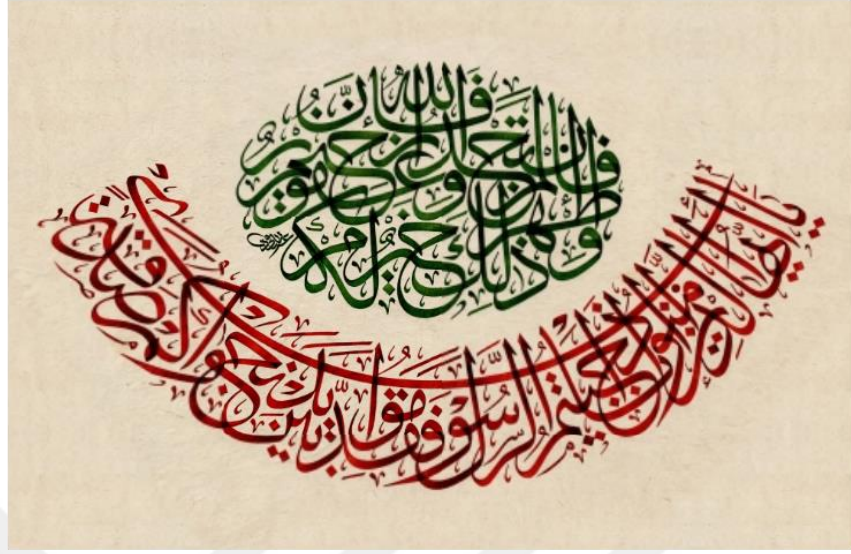 يَا أَيُّهَا الَّذِينَ آمَنُوا إِذَا نَاجَيْتُمُ الرَّسُولَ فَقَدِّمُوا بَيْنَ يَدَيْ نَجْوَاكُمْ صَدَقَةً
ذَٰلِكَ خَيْرٌ لَكُمْ وَأَطْهَرُ فَإِنْ لَمْ تَجِدُوا فَإِنَّ اللَّهَ غَفُورٌ رَحِيمٌ